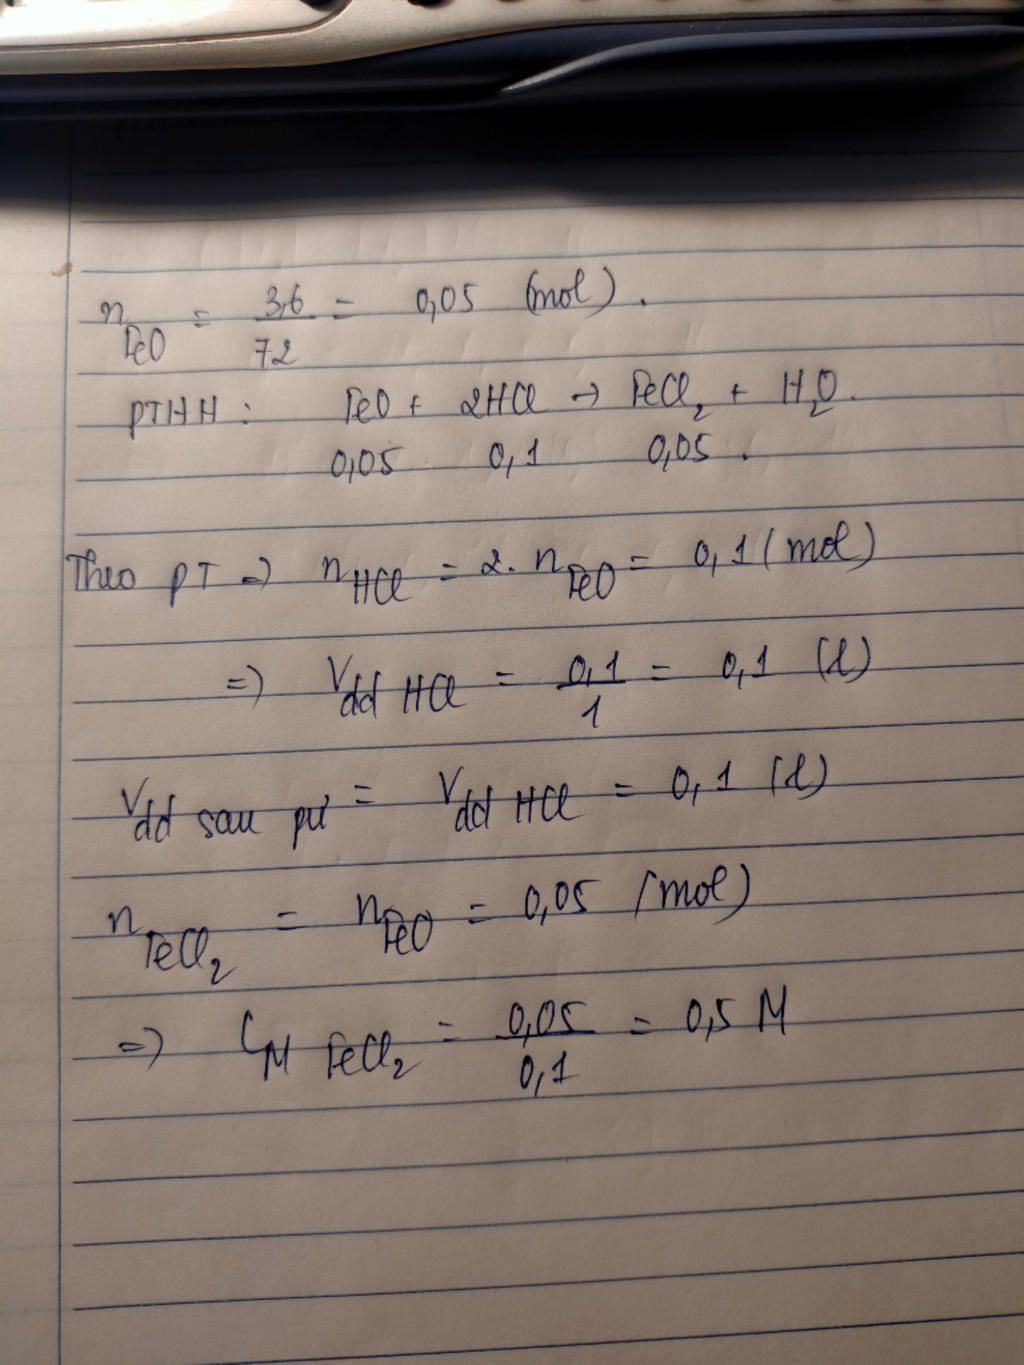 n FeO = 3,6/72 = 0,05 (mol).
PTHH: FeO + 2HCl → FeCl₂ + H₂O.
0,05 0,1 0,05.
Theo PT => n HCl = 2. n FeO = 0,1 (mol)
=> V dd HCl = 0,1/1 = 0,1 (l)
V dd sau pứ = V dd HCl = 0,1 (l)
n FeCl₂ = n FeO = 0,05 (mol)
=> C M FeCl₂ = 0,05/0,1 = 0,5 M